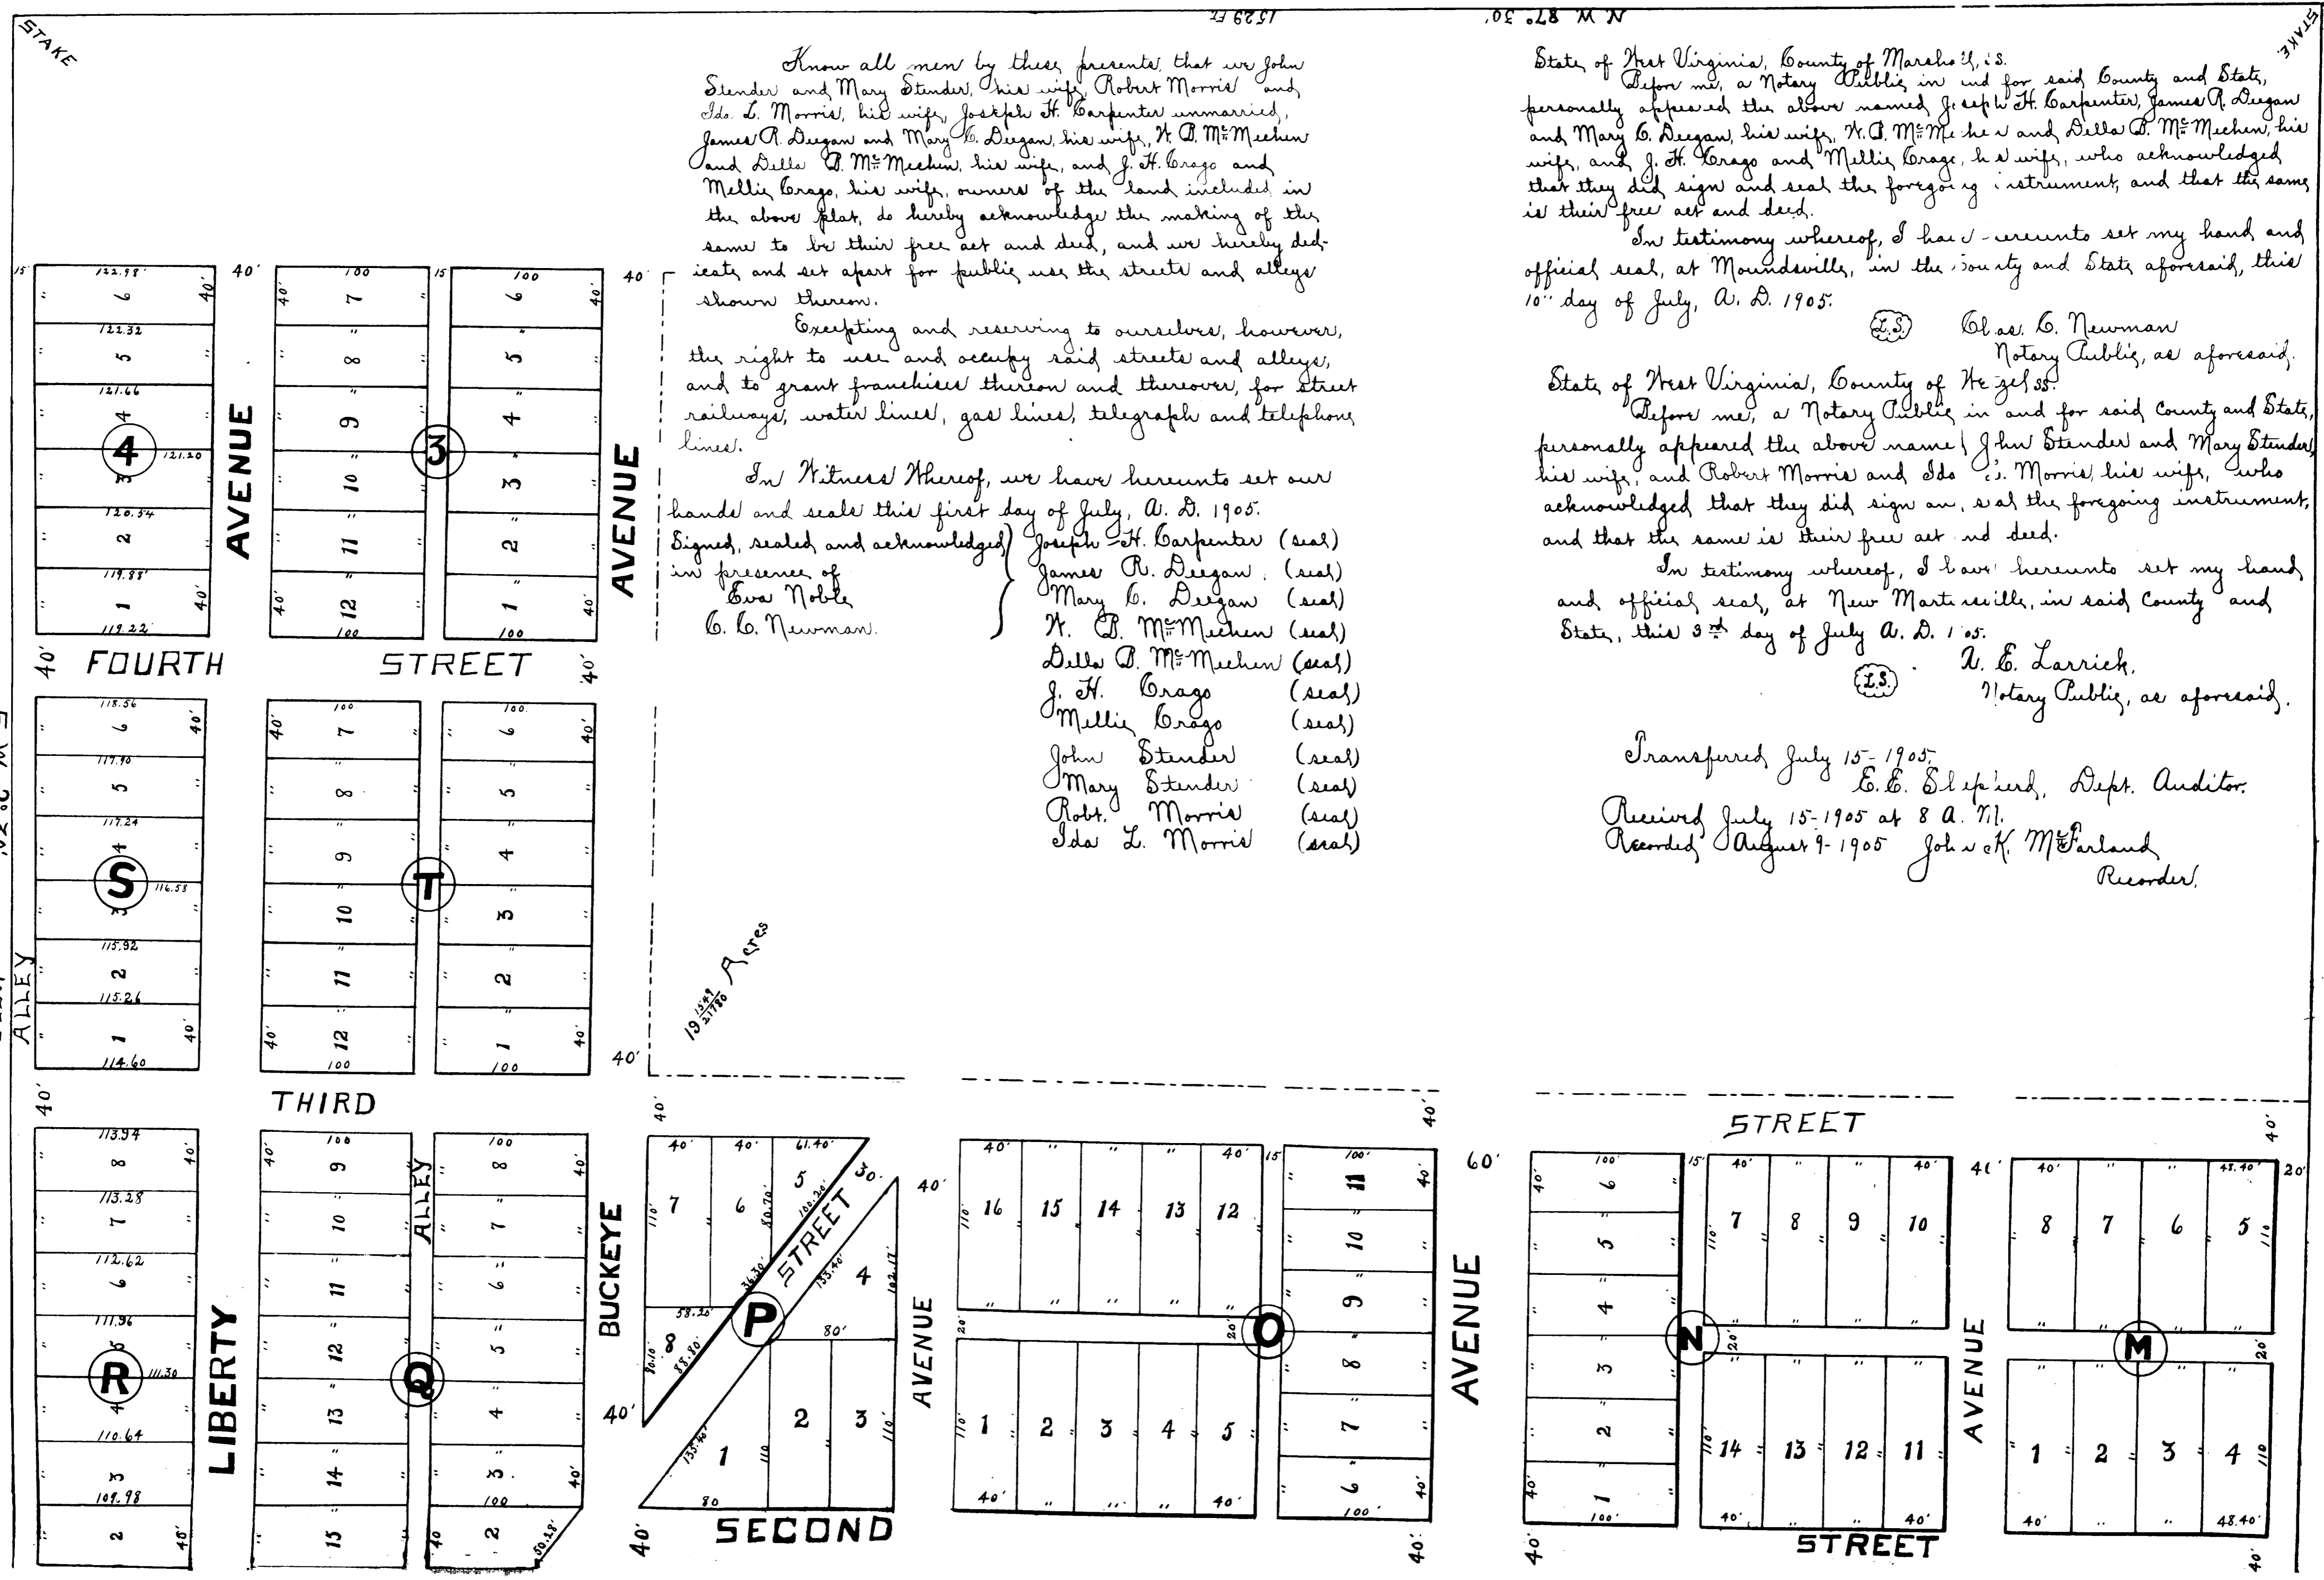 STAKE
1529 Ft
N. W. 87° 30'
STAKE
Know all men by these presents, that we John
Stender and Mary Stender, his wife, Robert Morris and
Ida L. Morris, his wife, Joseph H. Carpenter unmarried,
James R. Deegan and Mary C. Deegan, his wife, W. B. McMechen
and Della B. McMechen, his wife, and J. H. Crago and
Mellie Crago, his wife, owners of the land included in
the above plat, do hereby acknowledge the making of the
same to be their free act and deed, and we hereby ded-
icate and set apart for public use the streets and alleys
shown thereon.
Excepting and reserving to ourselves, however,
the right to use and occupy said streets and alleys,
and to grant franchises thereon and thereover, for street
railways, water lines, gas lines, telegraph and telephone
lines.
In Witness Whereof, we have hereunto set our
hands and seals this first day of July, A. D. 1905.
Signed, sealed and acknowledged
in presence of
Eva Noble
C. C. Newman.
Joseph H. Carpenter (seal)
James R. Deegan. (seal)
Mary C. Deegan (seal)
W. B. McMechen (seal)
Della B. McMechen (seal)
J. H. Crago (seal)
Mellie Crago (seal)
John Stender (seal)
Mary Stender (seal)
Robt. Morris (seal)
Ida L. Morris (seal)
State of West Virginia, County of Marshall, ss.
Before me, a Notary Public in and for said County and State,
personally appeared the above named Joseph H. Carpenter, James R. Deegan
and Mary C. Deegan, his wife, W. B. McMechen and Della B. McMechen, his
wife, and J. H. Crago and Mellie Crago, his wife, who acknowledged
that they did sign and seal the foregoing instrument, and that the same
is their free act and deed.
In testimony whereof, I have hereunto set my hand and
official seal, at Moundsville, in the County and State aforesaid, this
10" day of July, A. D. 1905.
L.S. Chas. C. Newman
Notary Public, as aforesaid.
State of West Virginia, County of Wetzel ss.
Before me, a Notary Public in and for said County and State,
personally appeared the above named John Stender and Mary Stender,
his wife, and Robert Morris and Ida L. Morris, his wife, who
acknowledged that they did sign and seal the foregoing instrument,
and that the same is their free act and deed.
In testimony whereof, I have hereunto set my hand
and official seal, at New Martinsville, in said County and
State, this 3rd day of July A. D. 1905.
L.S. E. Larrick.
Notary Public, as aforesaid.
Transferred July 15-1905.
E. E. Shepherd, Dept. Auditor.
Received July 15-1905 at 8 A. M.
Recorded August 9-1905 John K. McFarland
Recorder.
15' 122.98' 40' 100 15 100 40'
6 40' 40' 7 6 40'
122.32
5 8 5
121.66
4 9 4
4 121.20 AVENUE 3 AVENUE
3 10 3
120.54
2 11 2
119.88'
1 40' 40' 12 1 40'
119.22' 100 100
40' FOURTH STREET 40'
118.56 100 100
6 40' 40' 7 6 40'
117.90
5 8 5
117.24
4 9 4
S 116.58 T
3 10 3
115.92
2 11 2
115.26
ALLEY
1 40' 40' 12 1 40'
114.60 100 100 40'
19 1549/21780 Acres
40' THIRD 40' 40' STREET 40'
113.94 100 100
8 40' 40' 9 8 40'
113.28
7 10 ALLEY 7
112.62
6 11 6
111.96
5 12 5
R 111.30 LIBERTY Q BUCKEYE
4 13 4
110.64
3 14 3 40'
109.98 100
2 40' 15 40 2 50.28'
40' 40' 61.40'
7 6 5 30'
110' 80.70' 100.20'
STREET
36.30' 133.40' 4 102.17'
58.20' P 80'
8 80.10' 88.80'
40'
133.40' 1 110 2 3 110'
80
40' SECOND
40'
AVENUE
40' " " " 40' 15 100'
110' 16 15 14 13 12 11 40'
10
9
20' 20' O
8
110' 1 2 3 4 5 7
6
40' " " " 40' 100' 40'
60'
AVENUE
100' 15' 40' " " 40' 40'
40' 6 110' 7 8 9 10
5
4
N 20'
3
2 110' 14 13 12 11
40' 1
100' 40' " " 40'
40' STREET
AVENUE
40' " " 48.40' 20'
8 7 6 5 110
M 20'
1 2 3 4 110
40' " " 48.40'
40'